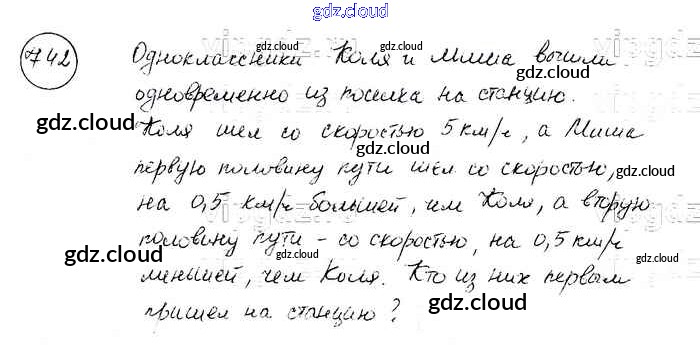 gdz.cloud
742 Одноклассники Коля и Миша вышли
gdz.cloud gdz.cloud
одновременно из поселка на станцию.
gdz.cloud gdz.cloud
Коля шел со скоростью 5 км/ч, а Миша
gdz.cloud
первую половину пути шел со скоростью,
gdz.cloud
на 0,5 км/ч большей, чем Коля, а вторую
gdz.cloud gdz.cloud
половину пути – со скоростью, на 0,5 км/ч
gdz.cloud gdz.cloud
меньшей, чем Коля. Кто из них первым
gdz.cloud
пришел на станцию?
gdz.cloud